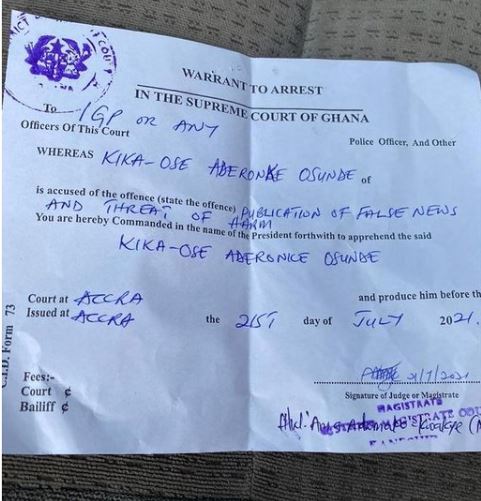 WARRANT TO ARREST
IN THE SUPREME COURT OF GHANA
To IGP OR ANY
Officers Of This Court
Police Officer, And Other
WHEREAS KIKA-OSE ADERONKE OSUNDE of
is accused of the offence (state the offence) PUBLICATION OF FALSE NEWS
AND THREAT OF HARM
You are hereby Commanded in the name of the President forthwith to apprehend the said
KIKA-OSE ADERONKE OSUNDE
Court at ACCRA and produce him before the
Issued at ACCRA the 21ST day of JULY 2021.
Form 73
Fees:-
Court ¢
Bailiff ¢
21/7/2021
Signature of Judge or Magistrate
MAGISTRATE